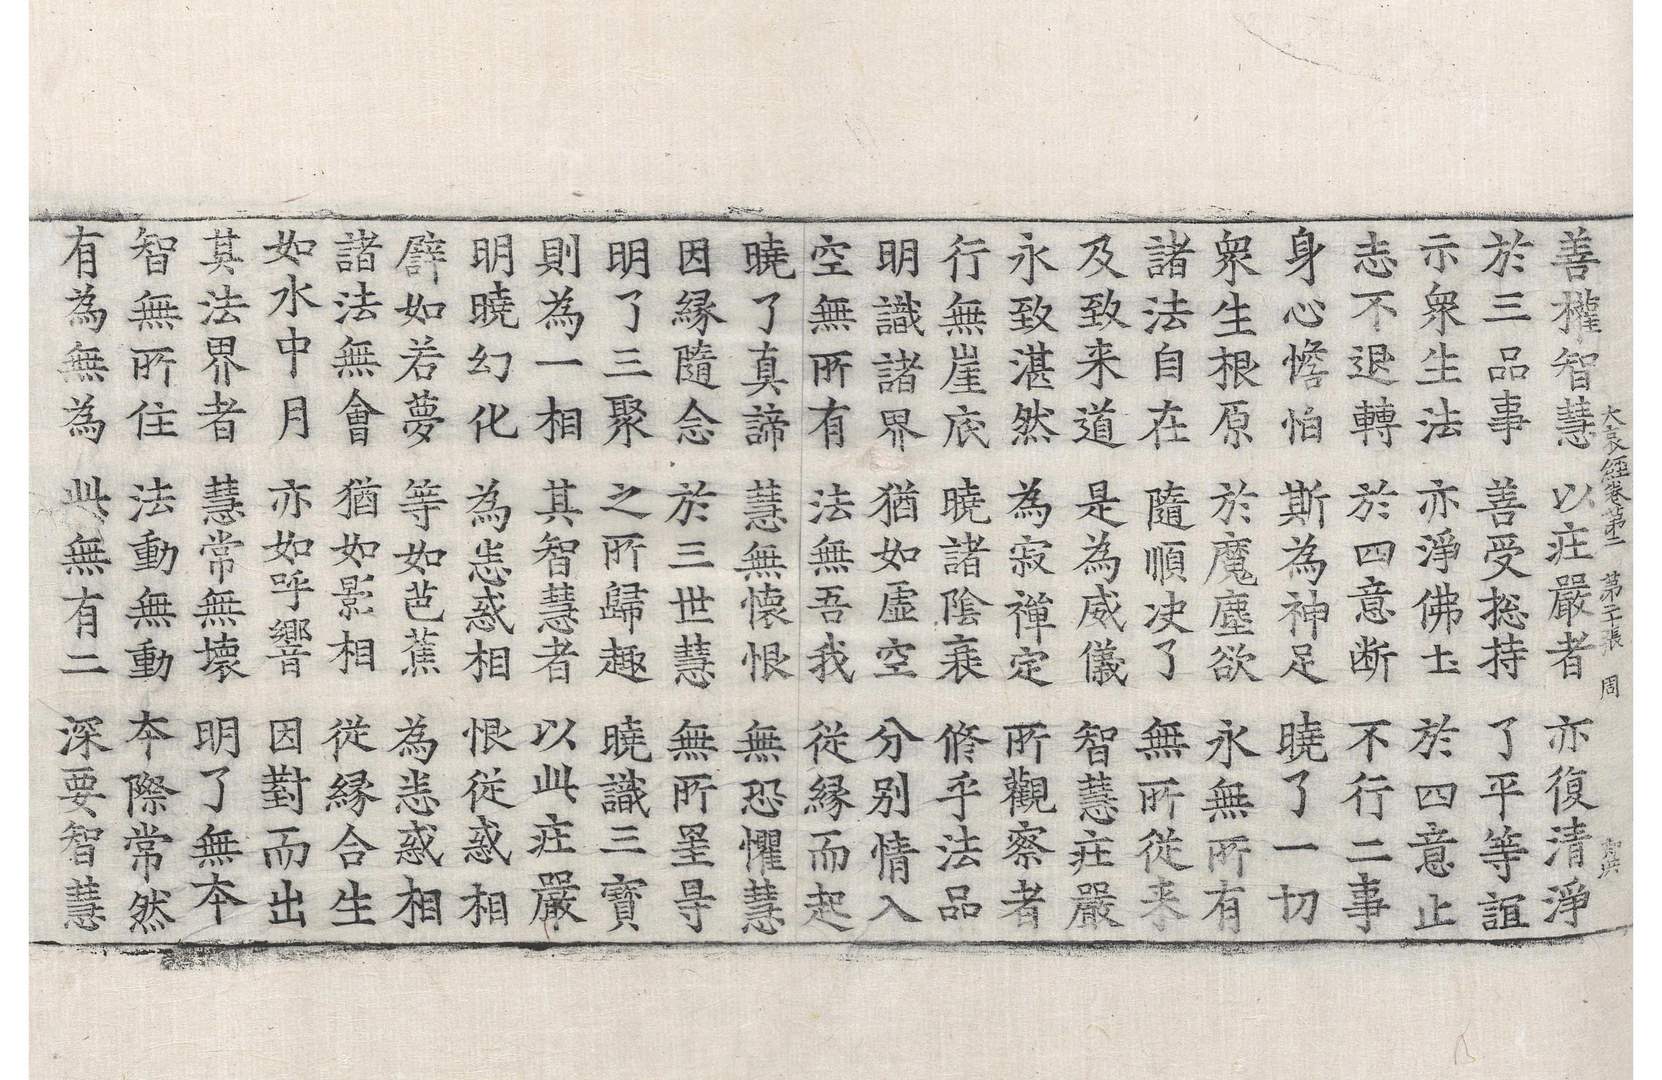 大哀經卷第二 第二十張 周
善權智慧 以庄嚴者 亦復清淨
於三品事 善受捴持 了平等誼
示衆生法 亦淨佛土 於四意止
志不退轉 於四意断 不行二事
身心憺怕 斯為神足 曉了一切
衆生根原 於魔塵欲 永無所有
諸法自在 隨順決了 無所従来
及致来道 是為威儀 智慧庄嚴
永致湛然 為寂禪定 所觀察者
行無崖底 曉諸陰衰 脩乎法品
明識諸界 猶如虛空 分别情入
空無所有 法無吾我 従縁而起
曉了真諦 慧無懐恨 無恐懼慧
因縁隨念 於三世慧 無所罣㝵
明了三聚 之所歸趣 曉識三寶
則為一相 其智慧者 以此庄嚴
明曉幻化 為恙惑相 恨従惑相
譬如若夢 等如芭蕉 為恙惑相
諸法無會 猶如影相 従縁合生
如水中月 亦如呼響 因對而出
其法界者 慧常無壊 明了無本
智無所住 法動無動 本際常然
有為無為 此無有二 深要智慧